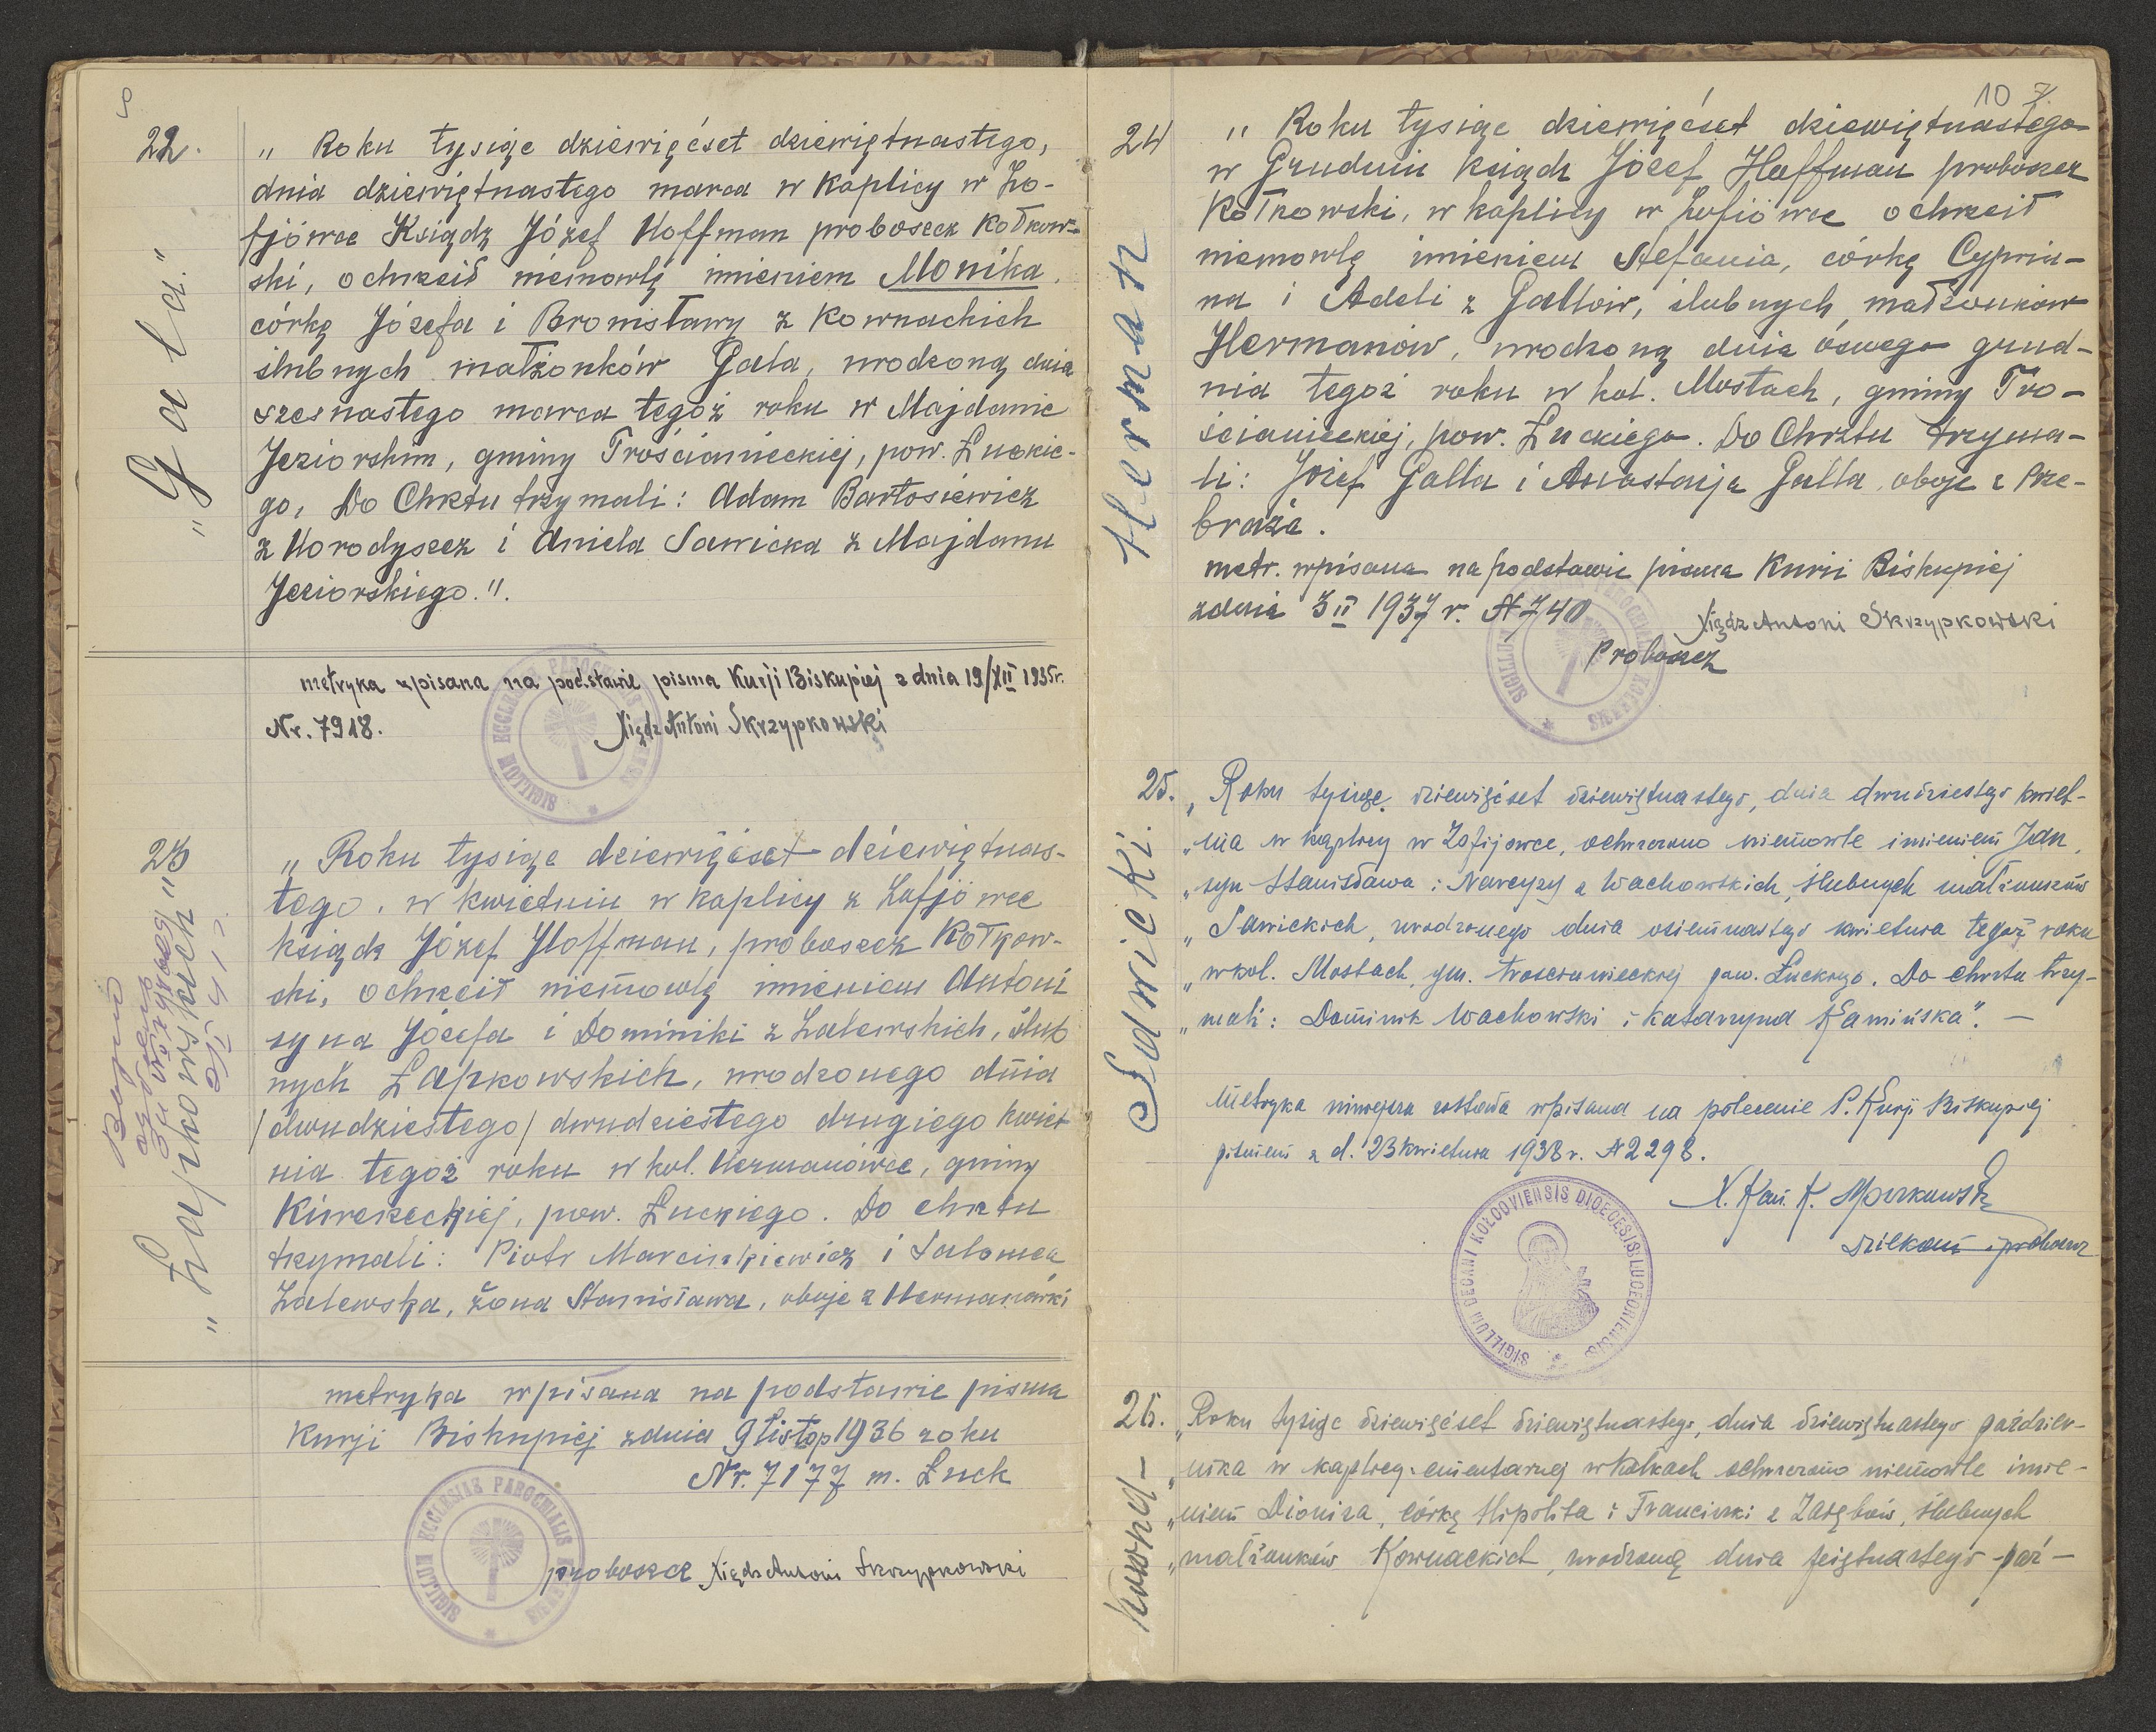 22.
"Gala."
„ Roku tysiąc dziewięćset dziewiętnastego,
dnia dziewiętnastego marca w kaplicy w Zo-
fjówce Ksiądz Józef Hoffman proboszcz Kołkow-
ski, ochrzcił niemowlę imieniem Monika,
córkę Józefa i Bronisławy z Kownackich
ślubnych małżonków Gala, urodzoną dnia
szesnastego marca tegoż roku w Majdanie
Jeziorskim, gminy Trościanieckiej, pow. Łuckie-
go, Do Chrztu trzymali: Adam Bartosiewicz
z Horodyszcz i Aniela Sawicka z Majdanu
Jeziorskiego.".
metryka wpisana na podstawie pisma Kurji Biskupiej z dnia 19/XII 1935r.
Nr. 7918.
Xiądz Antoni Skrzypkowski
SIGILLUM ECCLESIAE PAROCHIALIS
23
"Łapkowskich"
„ Roku tysiąc dziewięćset dziewiętnas-
tego, w kwietniu w kaplicy z Zofjówce
ksiądz Józef Hoffman, proboszcz Kołkow-
ski, ochrzcił niemowlę imieniem Antoni
syna Józefa i Dominiki z Zalewskich, ślub
nych Łapkowskich, urodzonego dnia
/dwudziestego/ dwudziestego drugiego kwiet
nia tegoż roku w kol. Hermanówce, gminy
Kiwereckiej, pow. Łuckiego. Do chrztu
trzymali: Piotr Marcinkiewicz i Salomea
Zalewska, żona Stanisława, oboje z Hermanówki
metryka wpisana na podstawie pisma
Kurji Biskupiej z dnia 9 listop 1936 roku
Nr. 7177 m. Łuck
proboszcz Xiądz Antoni Skrzypkowski
SIGILLUM ECCLESIAE PAROCHIALIS
10 7.
24
Herman
„ Roku tysiąc dziewięćset dziewiętnastego
w Grudniu ksiądz Józef Hoffman proboszcz
Kołkowski, w kaplicy w Zofiówce ochrzcił
niemowlę imieniem Stefania, córkę Cypria-
na i Adeli z Gallów, ślubnych małżonków
Hermanów, urodzoną dnia ósmego grud-
nia tegoż roku w kol. Mostach, gminy Tro-
ścianieckiej, pow. Łuckiego. Do Chrztu trzyma-
li: Józef Galla i Anastazja Galla, oboje z Prze-
braża.
metr. wpisana na podstawie pisma Kurii Biskupiej
z dnia 3 II 1937 r. N 740
Xiądz Antoni Skrzypkowski
Proboszcz
25.
Sawicki.
„Roku tysiąc dziewięćset dziewiętnastego, dnia dwudziestego kwiet-
„nia w kaplicy w Zofijówce, ochrzczono niemowle imieniem Jan,
„syn Stanisława i Narcyzy z Wachowskich, ślubnych małżonków
„Sawickich, urodzonego dnia osiemnastego kwietnia tegoż roku
„w kol. Mostach, gm. trościanieckiej pow. Łuckiego. Do chrztu trzy-
„mali: Dominik Wachowski i Katarzyna Kamińska". —
Metryka niniejsza została wpisana na polecenie P. Kurji Biskupiej
pismem z d. 23 kwietnia 1938 r. N 2298.
X. Kan. K.
Dziekan i proboszcz
SIGILLUM DECANI KOLCOVIENSIS DIOECESIS LUCEORIENSIS
26.
„Roku tysiąc dziewięćset dziewiętnastego, dnia dziewiętnastego paździer-
„nika w kaplicy cmentarnej w Kołkach ochrzczono niemowle imie-
„niem Dioniza, córkę Hipolita i Franciszki z Zarębów, ślubnych
„małżonków Kownackich, urodzoną dnia piętnastego paź-